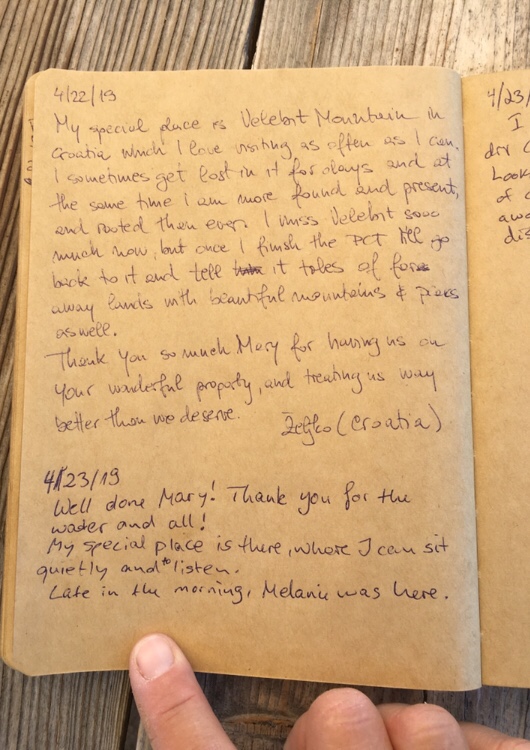 4/22/19
My special place is Velebit Mountain in
Croatia which I love visiting as often as I can.
I sometimes get lost in it for days and at
the same time I am more found and present,
and rooted then ever. I miss Velebit sooo
much now, but once I finish the PCT I'll go
back to it and tell it tales of
away lands with beautiful mountains &
aswell.
Thank you so much Mary for having us on
your wonderful property, and treating us way
better than we deserve.
Željko (Croatia)
4/23/19
Well done Mary! Thank you for the
water and all!
My special place is there, where I can sit
quietly and to listen.
Late in the morning, Melanie was here.
4/23/
I
Look
of
awa
dis